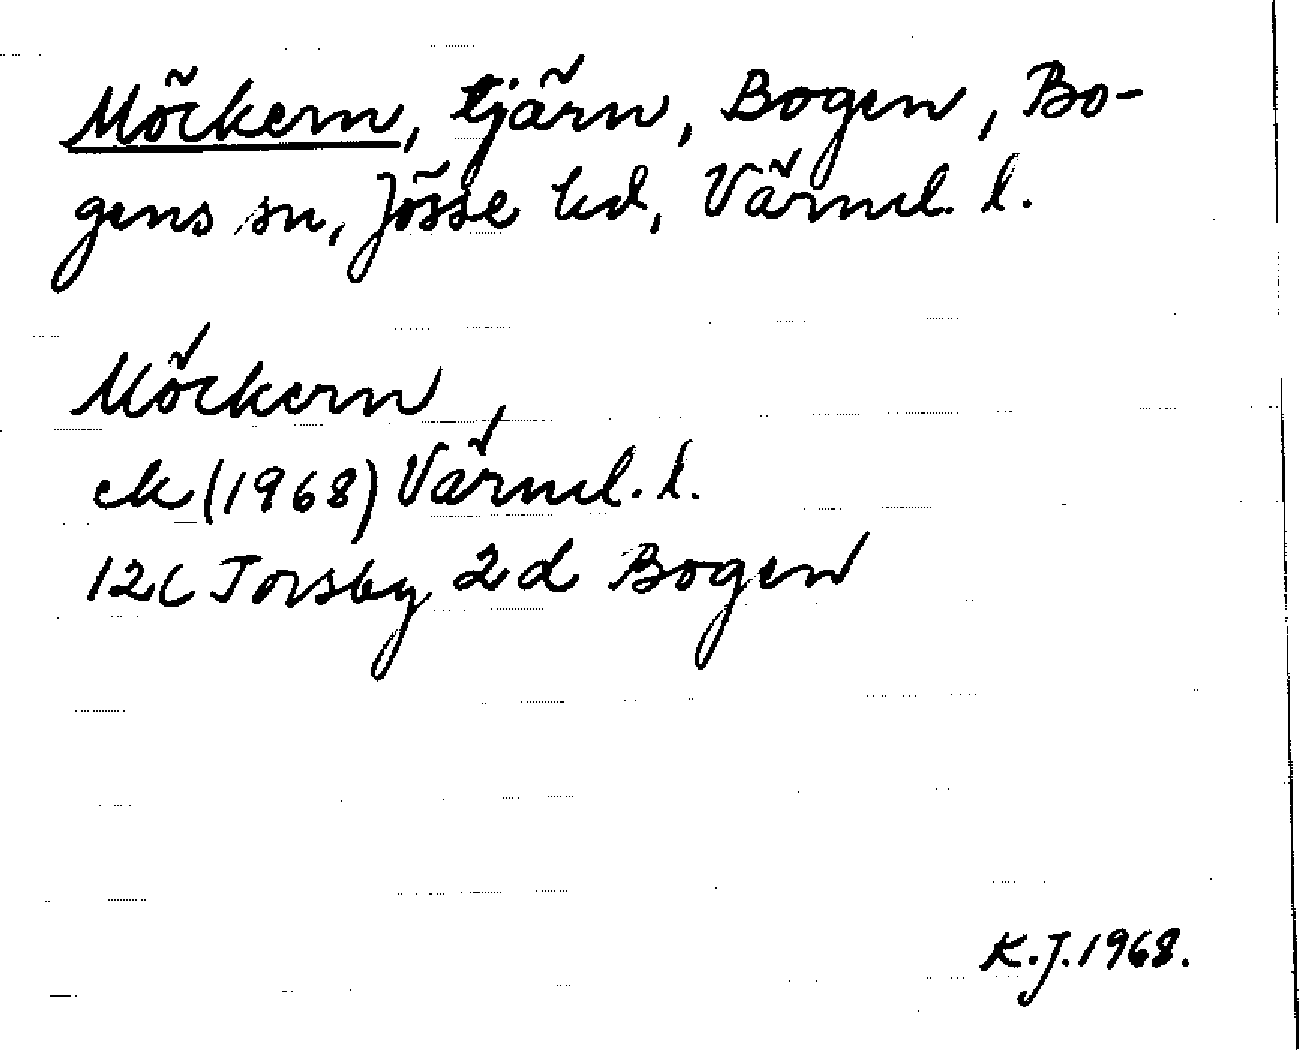 Möckern, tjärn, Bogen, Bo-
gens sn, Jösse hd, Värml. l.
Möckern
ek (1968) Värml. l.
12C Torsby 2d Bogen
K.J. 1968.